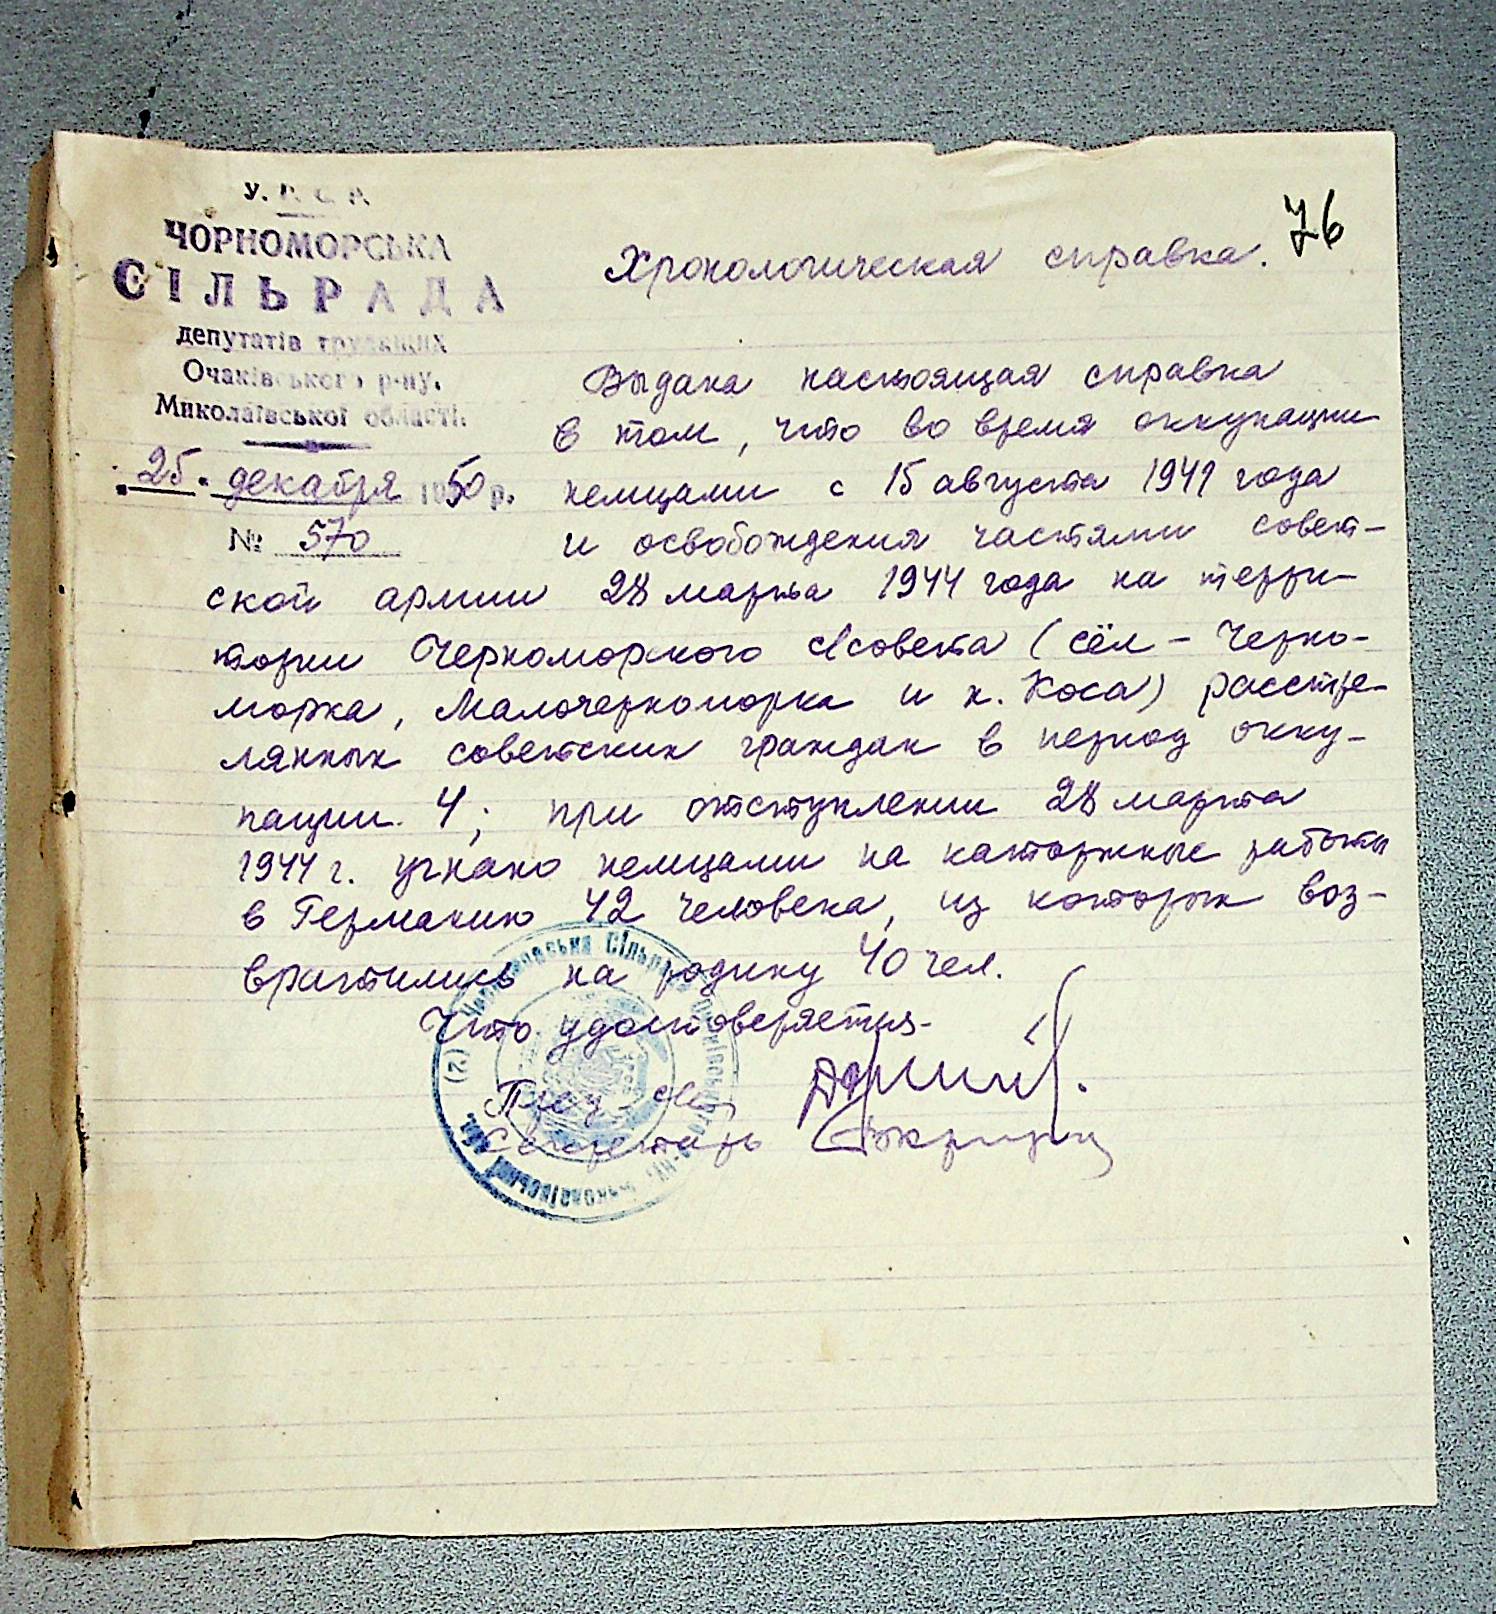 У.Р.С.Р.
ЧОРНОМОРСЬКА
СІЛЬРАДА
депутатів трудящих
Очаківського р-ну,
Миколаївської області
25. декабря 1950 р.
№ 570
76
Хронологическая справка.
Выдана настоящая справка
в том, что во время оккупации
немцами с 15 августа 1941 года
и освобождения частями совет-
ской армии 28 марта 1944 года на терри-
тории Черноморского с/совета (сёл - Черно-
морка, Малочерноморка и х. Коса) расстре-
лянных советских граждан в период окку-
пации 4; при отступлении 28 марта
1944 г. угнано немцами на каторжные работы
в Германию 42 человека, из которых воз-
вратились на родину 40 чел.
Что удостоверяется.
Пред. с/с
Секретарь
Чорноморська Сільрада Очаківського р-ну, Миколаївської обл. (2)